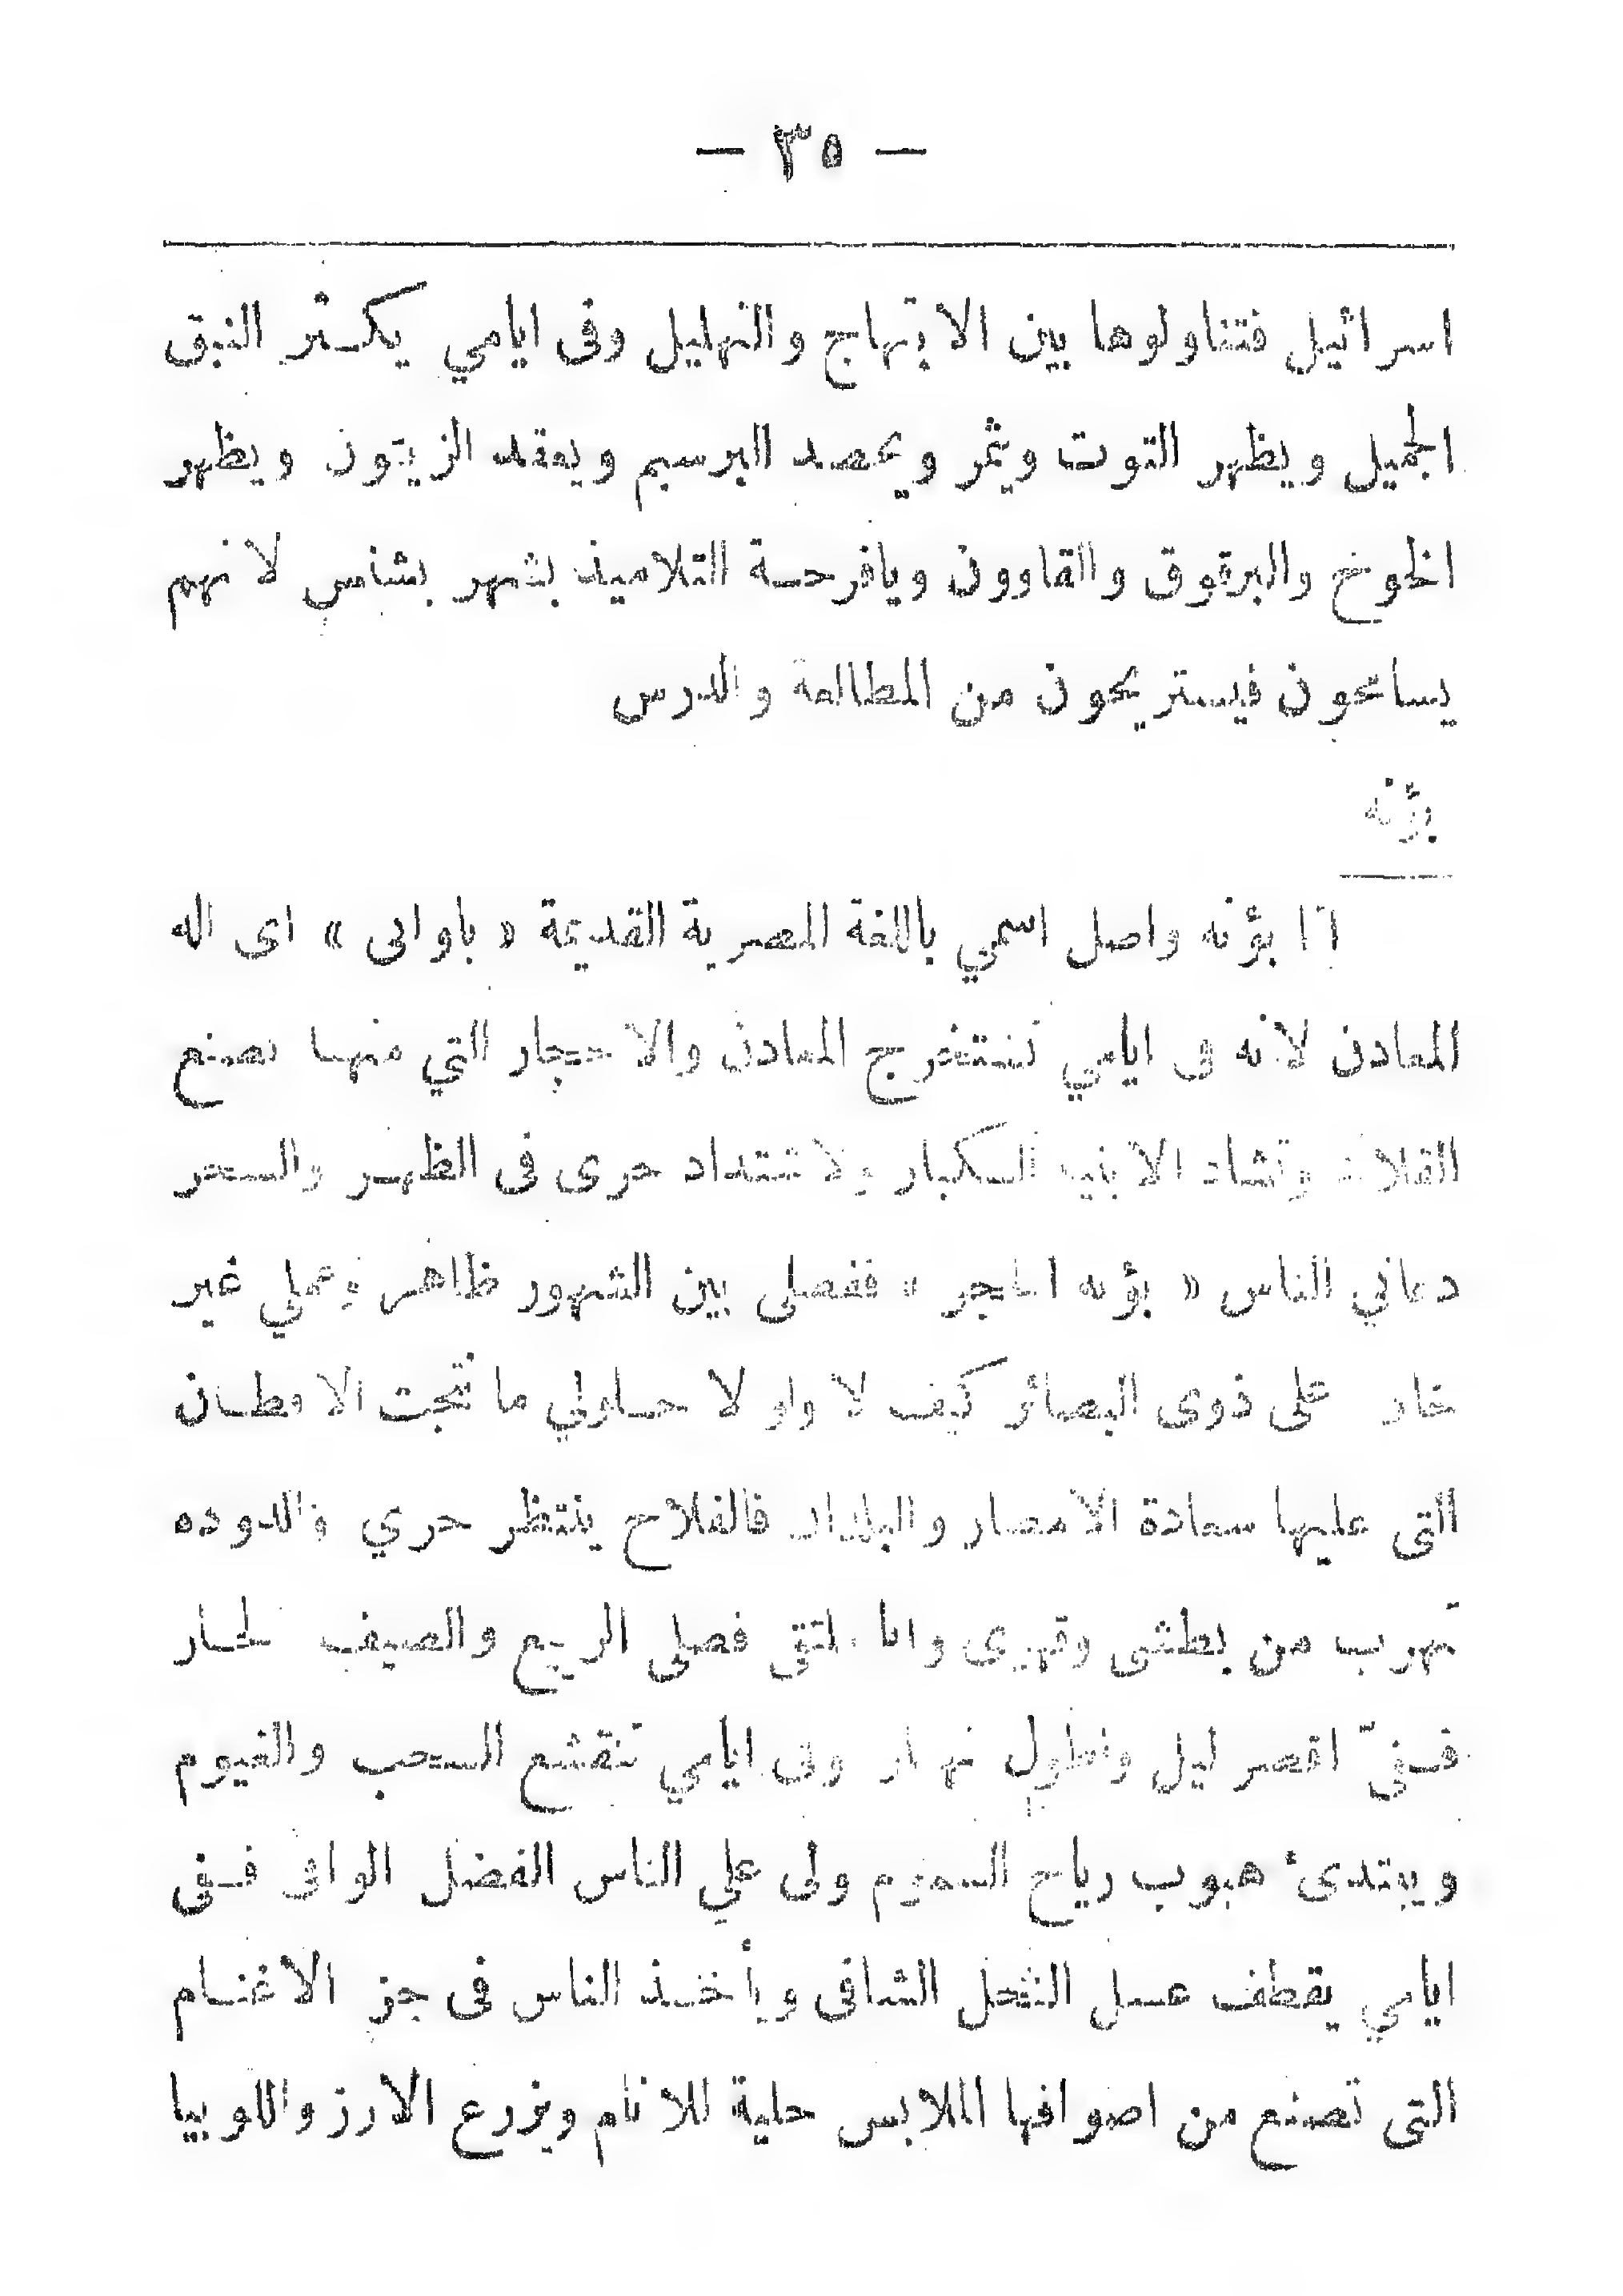 — ٣٥ —
اسرائيل فتناولوها بين الابتهاج والتهليل وفى ايامي يكثر النبق
الجميل ويظهر التوت ويثمر ويحصد البرسيم ويعقد الزيتون ويظهر
الخوخ والبرقوق والقاوون ويافرحة التلاميذ بشهر بشنس لانهم
يسامحون فيستريحون من المطالعة والدرس
بؤنه
انا بؤنه واصل اسمي باللغة المصرية القديمة « باوانى » اى اله
المعادن لانه فى ايامي تستخرج المعادن والاحجار التي منها تصنع
وتشاد الابنية الكبار ولاشتداد حرى فى الظهر والسحر
دعاني الناس « بؤنه الحجر » ففصلى بين الشهور ظاهر وعملي غير
خاف على ذوى البصائر كيف لا ولو لا حلولي ما نتجت الاقطان
التى عليها سعادة الامصار والبلدان فالفلاح ينتظر حري والدوده
تهرب من بطشى وقهرى وانا ملتقى فصلى الربيع والصيف الحار
ففىّ اقصر ليل واطول نهار وفى ايامي تنقشع السحب والغيوم
ويبتدئ هبوب رياح السموم ولى علي الناس الفضل الوافى ففى
ايامي يقطف عسل النحل الشافى ويأخذ الناس فى جز الاغنام
التى تصنع من اصوافها الملابس حلية للانام ويزرع الارز واللوبيا